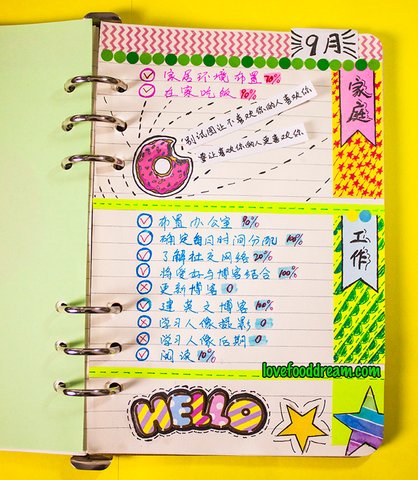 9月
家居环境布置 70%
在家吃饭 90%
家庭
别试图让不喜欢你的人喜欢你
要让喜欢你的人更喜欢你
布置办公室 90%
确定每日时间分配 100%
了解社交网络 20%
将爱好与博客结合 100%
更新博客 0
建英文博客 100%
学习人像摄影 0
学习人像后期 0
阅读 10%
工作
lovefooddream.com
HELLO